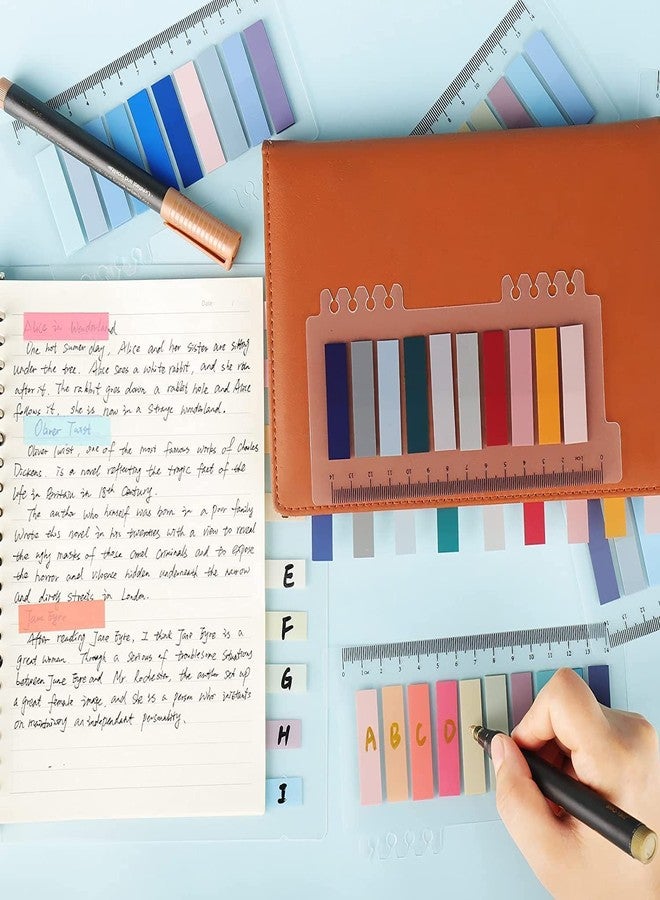 Date:
Alice in Wonderland
One hot summer day, Alice and her sister are sitting
under the tree. Alice sees a white rabbit, and she ran
after it. The rabbit goes down a rabbit hole and Alice
follows it, she is now in a strange wonderland.
Oliver Twist
Oliver Twist, one of the most famous works of Charles
Dickens, is a novel reflecting the tragic fact of the
life in Britain in 18th Century.
The author who himself was born in a poor family
wrote this novel in his twenties with a view to reveal
the ugly masks of those cruel criminals and to expose
the horror and violence hidden underneath the narrow
and dirty streets in London.
Jane Eyre
After reading Jane Eyre, I think Jane Eyre is a
great woman. Through a serious of troublesome situations
between Jane Eyre and Mr. Rochester, the author set up
a great female image, and she is a person who insistents
on maintaining an independent personality.
E
F
G
H
I
14 13 12 11 10 9 8 7 6 5 4 3 2 1CM 0
0 1CM 2 3 4 5 6 7 8 9 10 11 12 13 14
A B C D